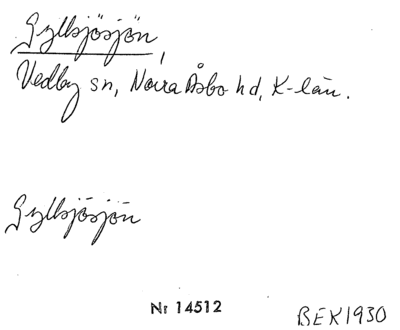 Gyllsjösjön,
Vedby sn, Norra Åsbo hd, K-län.
Gyllsjösjön
Nr 14512
BEK1930